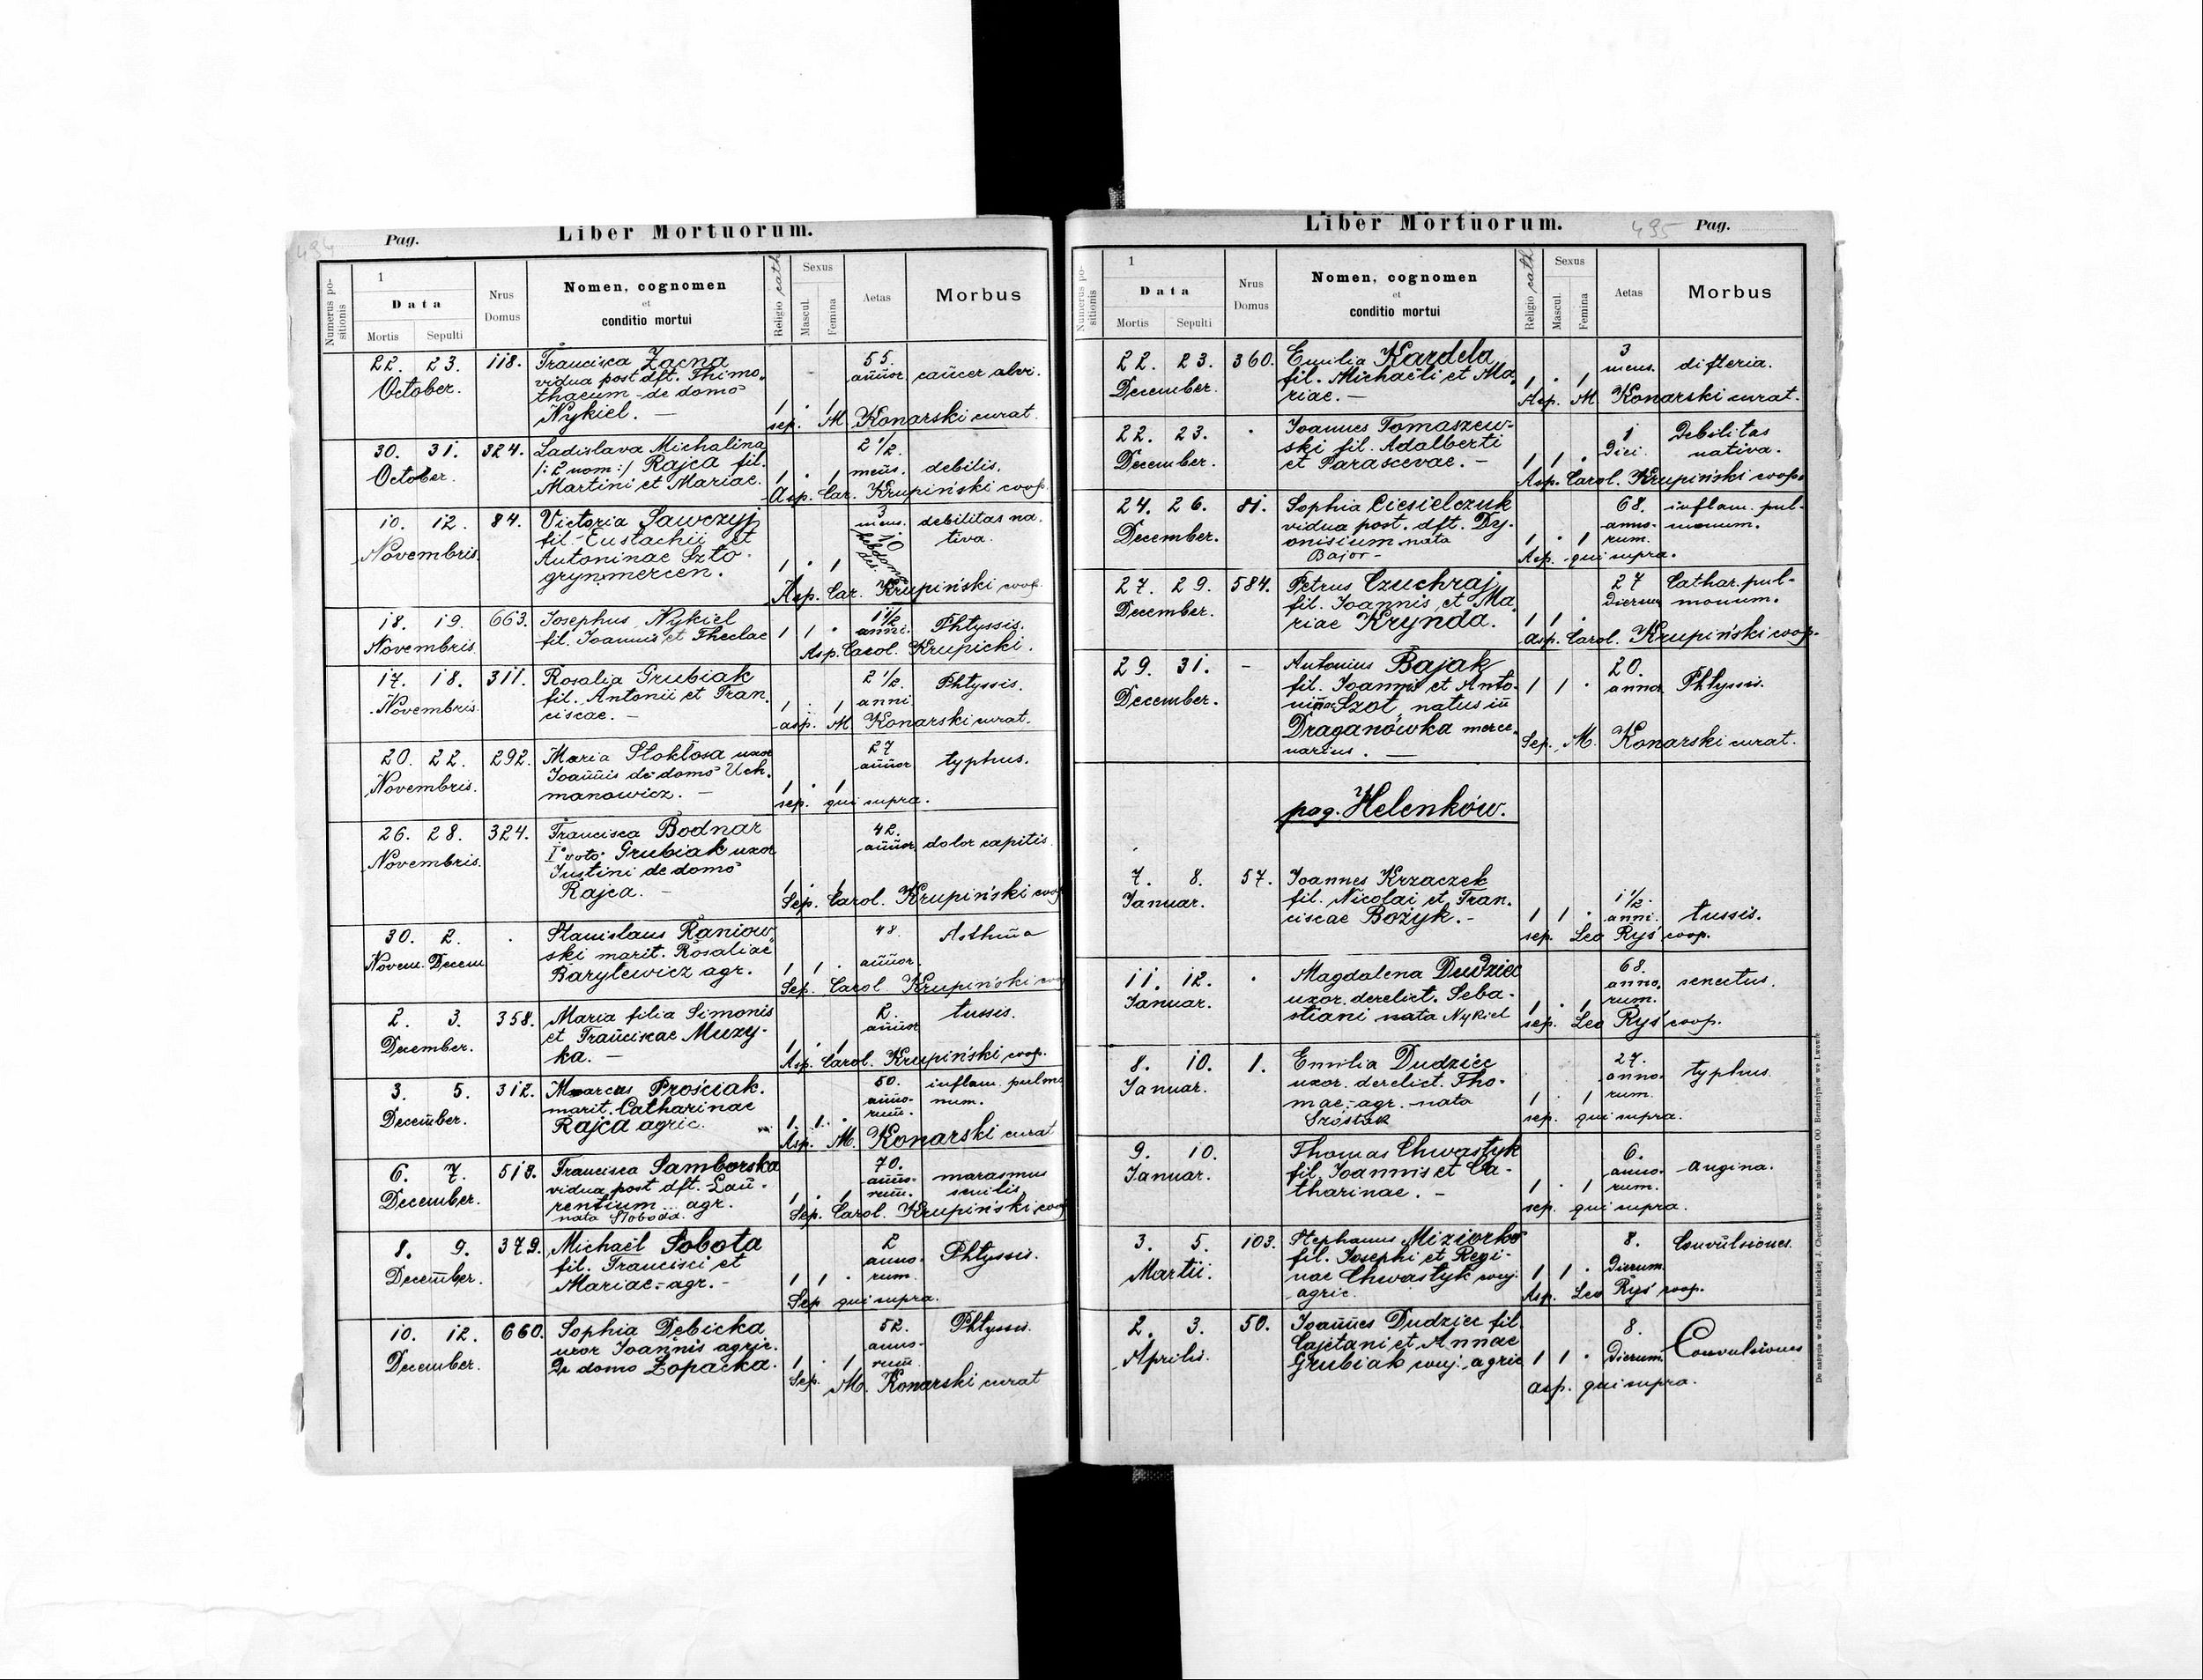 494
Pag.
Liber Mortuorum.
Numerus positionis
1
Data
Mortis
Sepulti
Nrus Domus
Nomen, cognomen
et
conditio mortui
Religio cath
Sexus
Mascul.
Femina
Aetas
Morbus
22. 23. 118. Francisca Zacna 55.
October. vidua post dft. Thimo- añños cañcer alvi.
thaeum de domo
Nykiel. — 1 . 1
sep. M Konarski curat.
30. 31. 324. Ladislava Michalina 2 1/2.
October. /: 2 nom :/ Rajca fil. meñs. debilis.
Martini et Mariae. 1 . 1
Asp. Car. Krupiński coop.
10. 12. 84. Victoria Sawczyj 3 debilitas na-
Novembris. fil. Eustachii et mens. tiva.
Antoninae Szto- 10 hebdoma des.
gryn mercen. 1 . 1
Asp. Car. Krupiński coop.
18. 19. 663. Josephus Nykiel 1 1/2 Phtyssis.
Novembris fil. Joannis et Theclae 1 1 . anni.
Asp. Carol. Krupicki.
17. 18. 311. Rosalia Grubiak 2 1/2. Phtyssis.
Novembris fil. Antonii et Fran- anni
ciscae. — 1 . 1
asp. M Konarski curat.
20. 22. 292. Maria Stokłosa uxor 27 typhus.
Novembris. Joaññis de domo Uch- aññor
manowicz. — 1 . 1
sep. qui supra.
26. 28. 324. Francisca Bodnar 42.
Novembris. I° voto Grubiak uxor aññor dolor capitis.
Justini de domo
Rajca. — 1 . 1
Sep. Carol. Krupiński coop
30. 2. . Stanislaus Raniow- 48. Asthma
Novem. Decem ski marit. Rosaliae
Barylewicz agr. 1 1 . aññor.
Sep. Carol. Krupiński coo
2. 3. 358. Maria filia Simonis 2. tussis.
December. et Frañciscae Muzy- aññor
ka. — 1 . 1
Asp. Carol. Krupiński coop.
3. 5. 312. Marcus Prościak. 50. inflam. pulmo
December. marit. Catharinae anno- num.
Rajca agric. 1 1 . rum.
Asp. M. Konarski curat
6. 7. 518. Francisca Samborska 70. marasmus
December. vidua post dft. Lau- anno- senilis
rentium agr. 1 . 1 rum.
nata Słoboda. Sep. Carol. Krupiński coop
8. 9. 379. Michaël Sobota 2 Phtyssis.
December. fil. Francisci et anno-
Mariae - agr. - 1 1 . rum.
Sep qui supra.
10. 12. 660. Sophia Dębicka 52. Phtyssis.
December. uxor Joannis agric. anno-
De domo Łopacka. 1 . 1 rum
Sep. M. Konarski curat
Liber Mortuorum.
495
Pag.
Numerus positionis
1
Data
Mortis
Sepulti
Nrus Domus
Nomen, cognomen
et
conditio mortui
Religio cath
Sexus
Mascul.
Femina
Aetas
Morbus
22. 23. 360. Emilia Kardela 3
December. fil. Michaëli et Ma- mens. difteria.
riae. — 1 . 1
Asp. M Konarski curat.
22. 23. . Joannes Tomaszew- 1 Debilitas
December. ski fil. Adalberti Diei. nativa.
et Parascevae. — 1 1 .
Asp. Carol. Krupiński coop.
24. 26. 81. Sophia Ciesielczuk 68. inflam. pul-
December. vidua post. dft. Dy- anno- monum.
onisium nata 1 . 1 rum.
Bajor - Asp. qui supra.
27. 29. 584. Petrus Czuchraj 27 Cathar. pul-
December. fil. Joannis et Ma- Dierum monum.
riae Krynda. 1 1 .
asp. Carol. Krupiński coop.
29. 31. - Antonius Bajak 20.
December. fil. Joannis et Anto- 1 1 . annor Phtyssis.
ninae Szot natus in
Draganówka merce-
narius. — Sep. M. Konarski curat.
pag. Helenków.
7. 8. 57. Joannes Krzaczek
Januar. fil. Nicolai et Fran- 1 1/2.
ciscae Bożyk. - 1 1 . anni. tussis.
sep. Leo Ryś coop.
11. 12. . Magdalena Dudziec 68. senectus.
Januar. uxor. derelict. Seba- anno-
stiani nata Nykiel 1 . 1 rum.
sep. Leo Ryś coop.
8. 10. 1. Emilia Dudziec 27. typhus.
Januar. uxor. derelict. Tho- anno-
mae - agr. - nata 1 . 1 rum.
Szostak sep. qui supra.
9. 10. Thomas Chwastyk 6. angina.
Januar. fil. Joannis et Ca- anno-
tharinae. - 1 . 1 rum.
sep. qui supra.
3. 5. 103. Stephanus Miziorko 8. Convulsiones.
Martii. fil. Josephi et Regi- Dierum.
nae Chwastyk conj. 1 1 .
agric. Asp. Leo Ryś coop.
2. 3. 50. Joannes Dudziec fil. 8. Convulsiones
Aprilis. Cajetani et Annae Dierum.
Grubiak conj. agric 1 1 .
asp. qui supra.
Do nabycia w drukarni katolickiej J. Chęcińskiego w zabudowaniu OO. Bernardynów we Lwowie